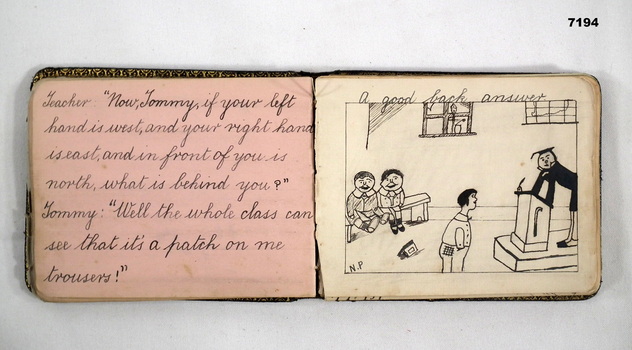 7194
Teacher: "Now, Tommy, if your left
hand is west, and your right hand
is east, and in front of you is
north, what is behind you?"
Tommy: "Well the whole class can
see that it's a patch on me
trousers!"
A good back answer
N.P